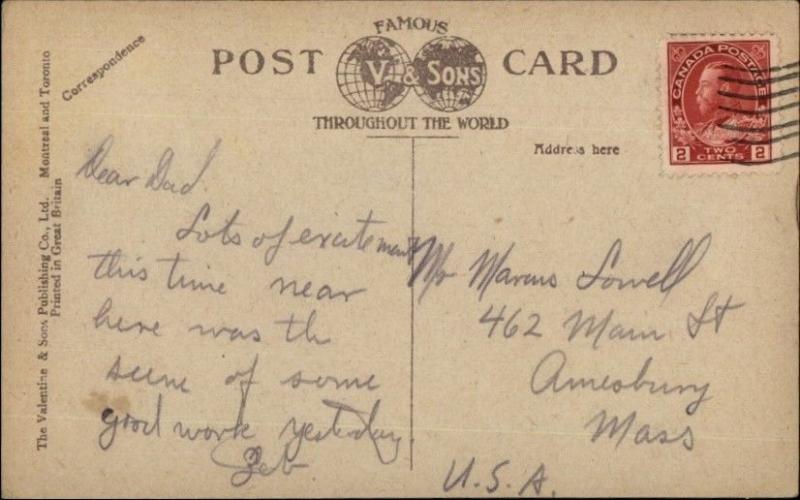 FAMOUS
POST CARD
V. & SONS
THROUGHOUT THE WORLD
Correspondence
Address here
CANADA POSTAGE
2 TWO CENTS 2
The Valentine & Sons Publishing Co., Ltd. Montreal and Toronto
Printed in Great Britain
Dear Dad
Lots of excitement
this time near
here was the
scene of some
good work yesterday.
Zeb
Mr Marcus Lowell
462 Main St
Amesbury
Mass
U.S.A.